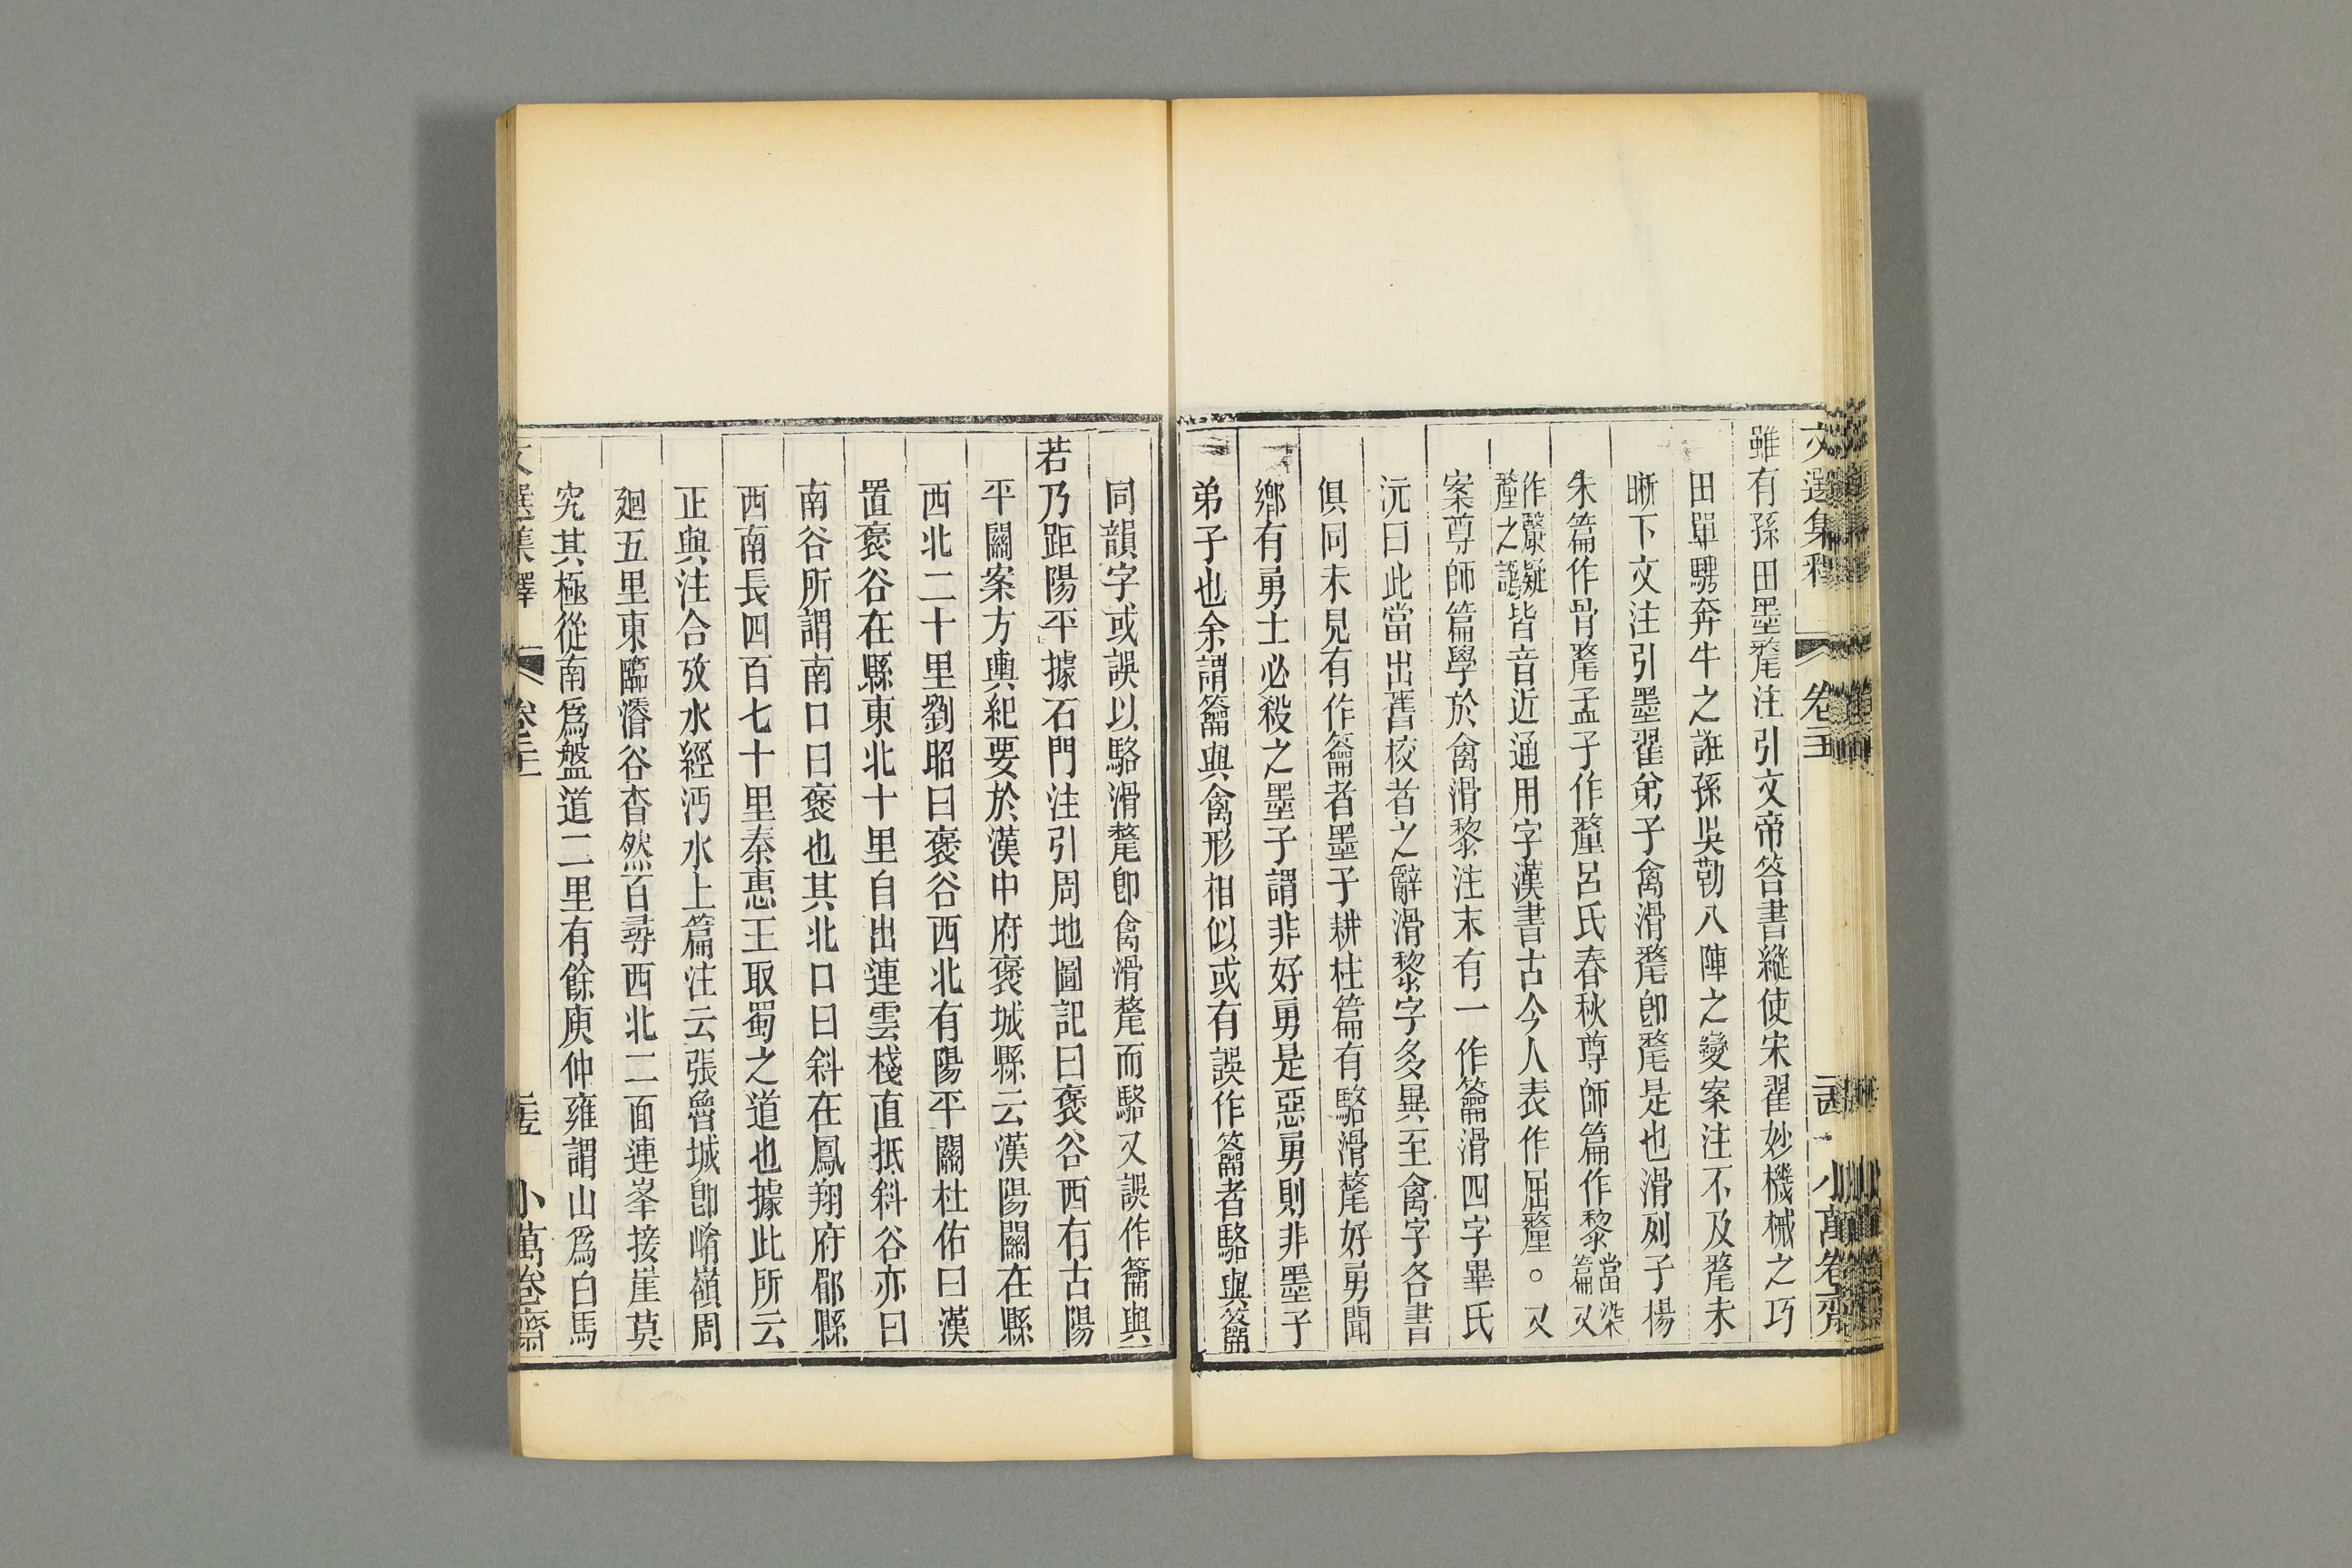 文選集釋 卷二十二 二十四 小萬卷齋
雖有孫田墨氂注引文帝答書縱使宋翟妙機械之巧
田單騁奔牛之誑孫吳勒八陣之變案注不及氂未
晰下文注引墨翟弟子禽滑氂卽氂是也滑列子楊
朱篇作骨氂孟子作釐呂氏春秋尊師篇作黎當染篇又
作䵩疑釐之譌皆音近通用字漢書古今人表作屈釐。又
案尊師篇學於禽滑黎注末有一作籥滑四字畢氏
沅曰此當出舊校者之辭滑黎字多異至禽字各書
俱同未見有作籥者墨子耕柱篇有駱滑氂好勇聞
鄉有勇士必殺之墨子謂非好勇是惡勇則非墨子
弟子也余謂籥與禽形相似或有誤作籥者駱與籥
同韻字或誤以駱滑氂卽禽滑氂而駱又誤作籥與
若乃距陽平據石門注引周地圖記曰褒谷西有古陽
平關案方輿紀要於漢中府褒城縣云漢陽關在縣
西北二十里劉昭曰褒谷西北有陽平關杜佑曰漢
置褒谷在縣東北十里自出連雲棧直抵斜谷亦曰
南谷所謂南口曰褒也其北口曰斜在鳳翔府郿縣
西南長四百七十里秦惠王取蜀之道也據此所云
正與注合攷水經沔水上篇注云張魯城卽崤嶺周
廻五里東臨濬谷杳然百尋西北二面連峯接崖莫
究其極從南爲盤道二里有餘庾仲雍謂山爲白馬
文選集釋 卷二十二 二十五 小萬卷齋